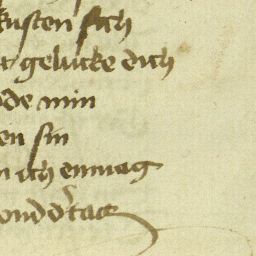 kusten sich
gelucke dich
de min
en sin
n ich enmag